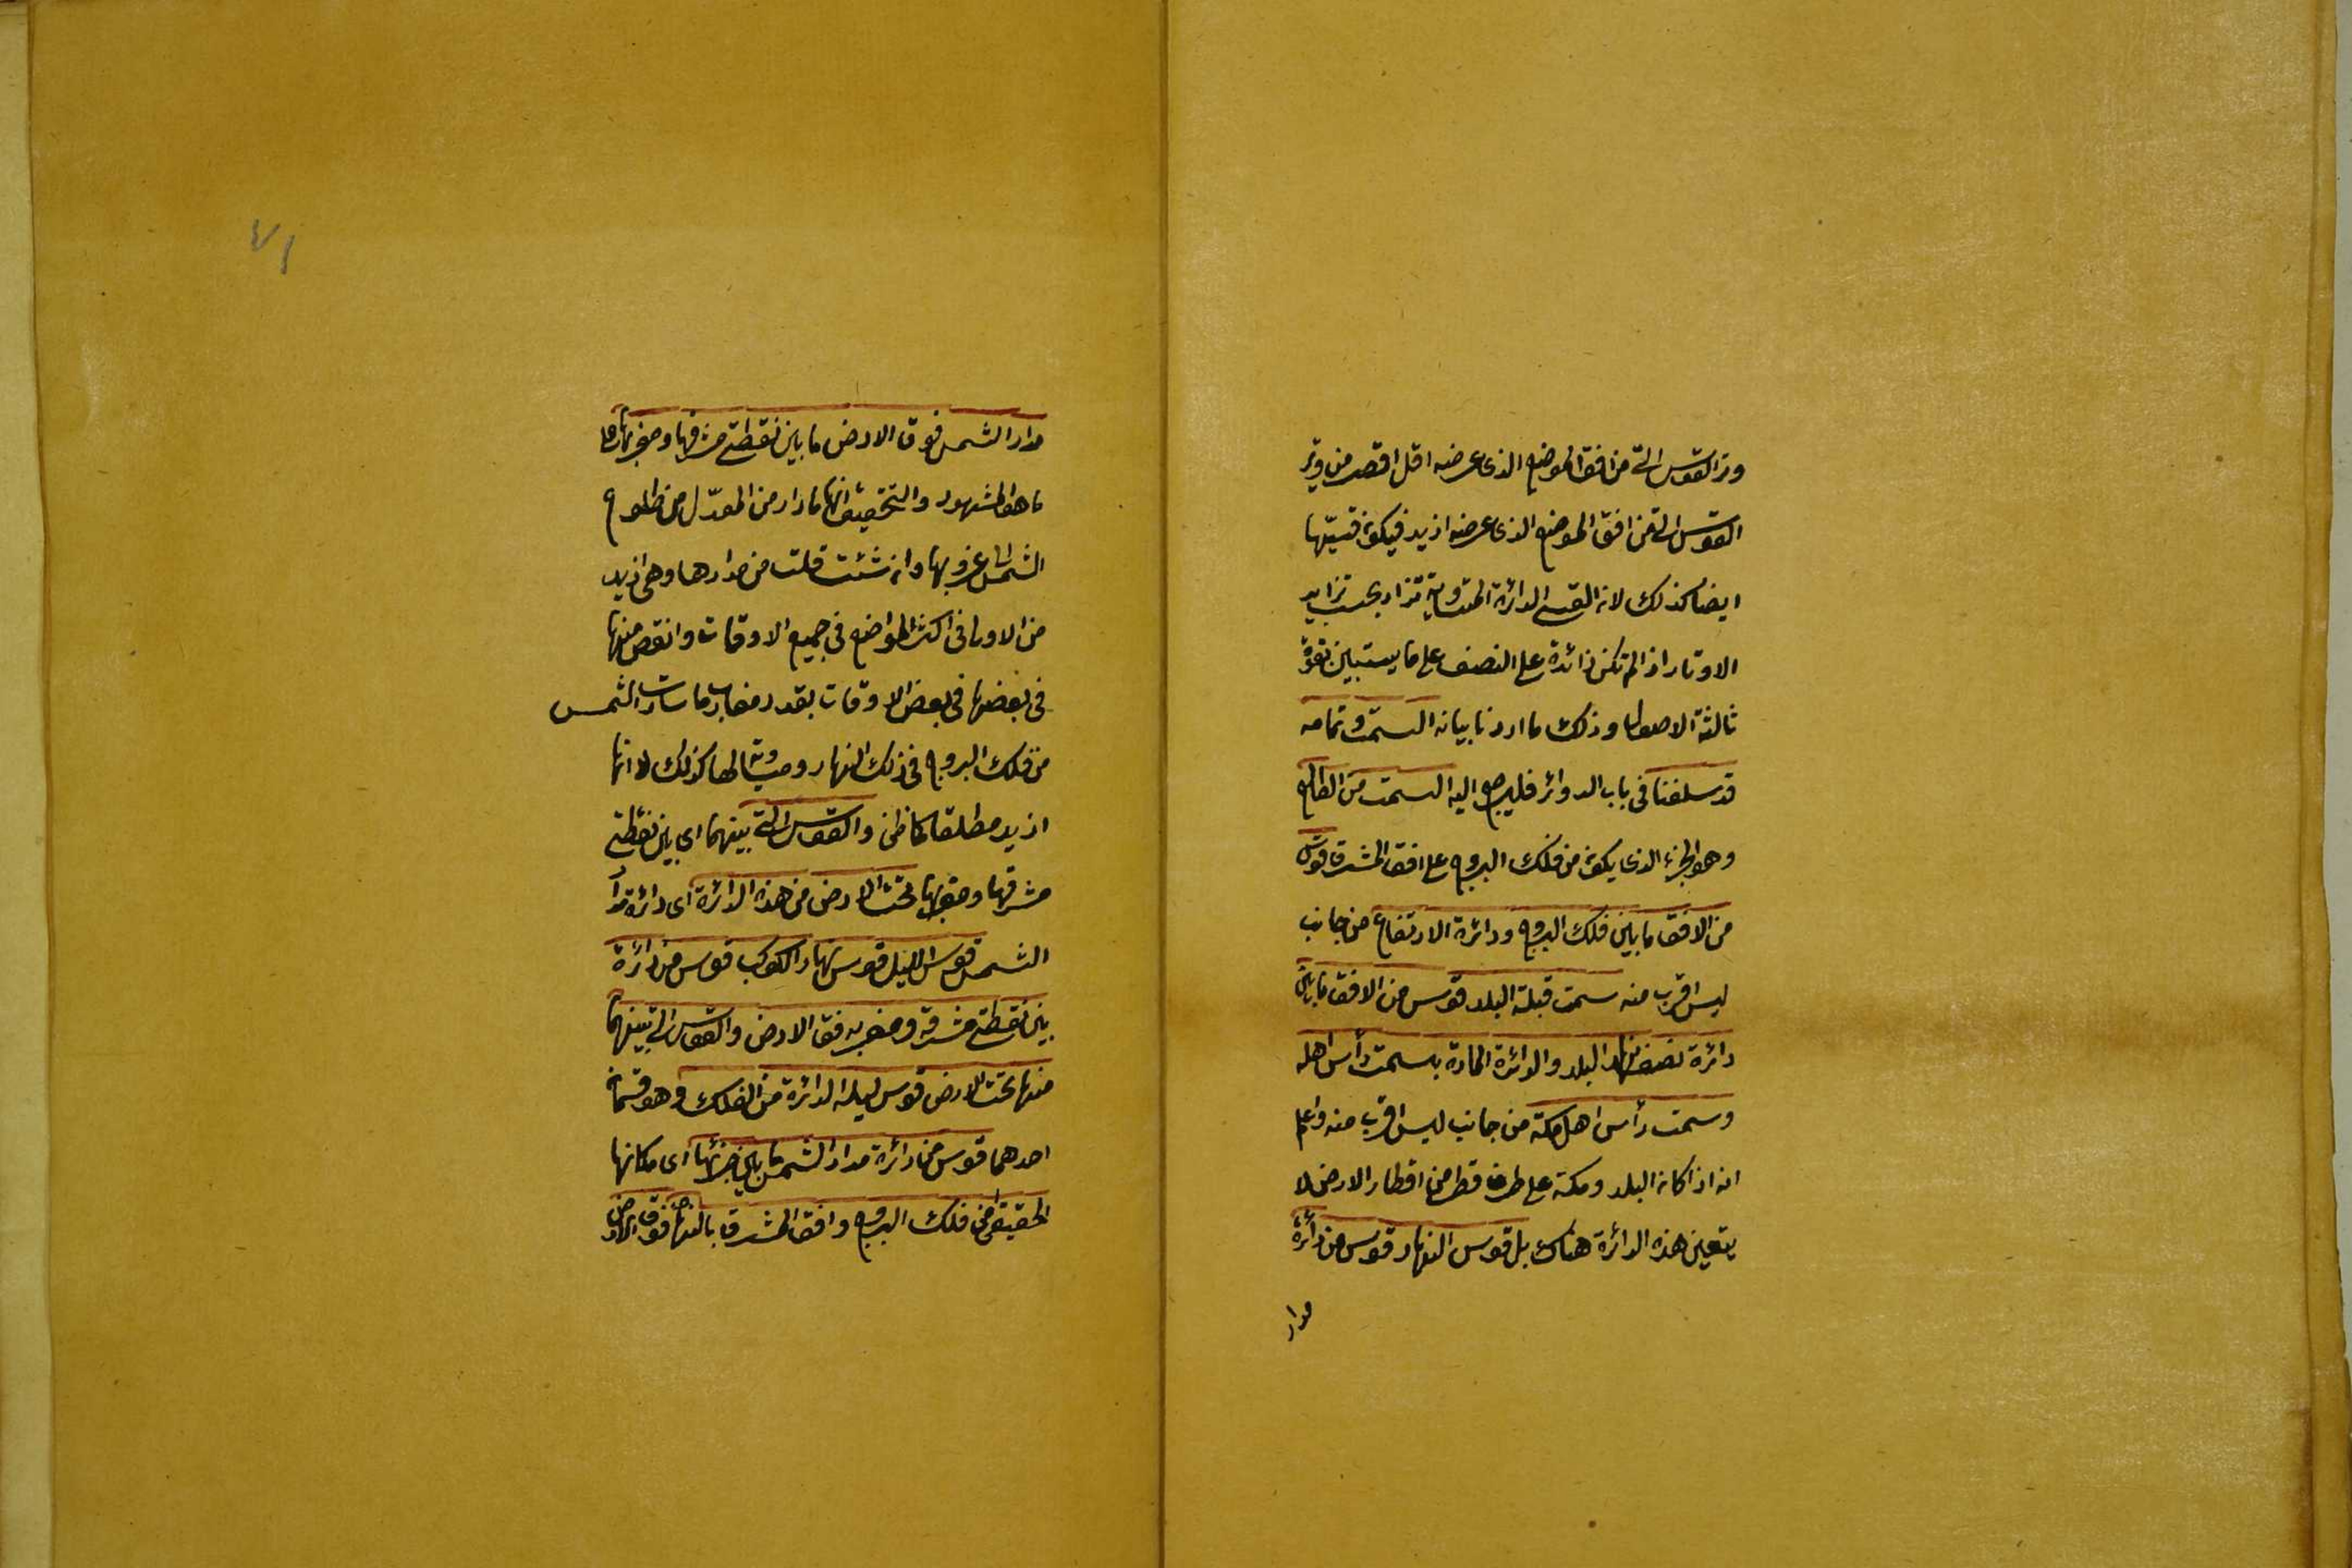 وتر القوس التى من افق الموضع الذى عرضه اقل اقصر من وتر
القوس التى من افق الموضع الذى عرضه ازيد فيكون قسيّها
ايضا كذلك لان القسى الدائرة المتساوية تزاد بحسب تزايد
الاوتار اذا لم تكن زائدة على النصف على ما يستبين بقوة
ثالثة الاصول وذلك ما اردنا بيانه السمت وتمامه
قد سلفنا فى باب الدوائر فليرجع اليه السمت من الطالع
وهو الجزء الذى يكون من فلك البروج على افق المشرق قوس
من الافق ما بين فلك البروج ودائرة الارتفاع من جانب
ليس اقرب منه سمت قبلة البلد قوس من الافق ما بين
دائرة نصف نهار البلد والدائرة المارة بسمت رأس اهله
وسمت رأس اهل مكة من جانب ليس اقرب منه واعلم
انه اذا كانه البلد ومكة على طرف قطر من اقطار الارض لا
يتعين هذه الدائرة هناك بل قوس النهار قوس من دائرة
مدار
٧١
مدار الشمس فوق الارض ما بين نقطتى مشرقها ومغربها
ما هو المشهور والتحقيق انها ما دار من المعدّل من طلوع
الشمس الى غروبها وان شئت قلت من مدارها وهى ازيد
من الاولى فى اكثر المواضع فى جميع الاوقات وانقص منها
فى بعضها فى بعض الاوقات بقدر مغارب ما سارت الشمس
من فلك البروج فى ذلك النهار ومساوية لها كذلك لا انها
ازيد مطلقا كما ظن والقوس التى بينهما اى بين نقطتى
مشرقها ومغربها تحت الارض من هذه الدائرة اى دائرة مدار
الشمس قوس الليل قوس نهار الكوكب قوس من دائرة
بين نقطتى مشرقه ومغربه فوق الارض والقوس التى بينهما
منها تحت الارض قوس ليله الدائرة من الفلك وهو قسمان
احدهما قوس من دائرة مدار الشمس ما بين جزئها اى مكانها
الحقيقى من فلك البروج وافق المشرق بالنهار فوق الارض